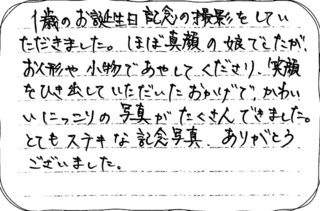 1歳のお誕生日記念の撮影をしてい
ただきました。ほぼ真顔の娘でしたが、
お人形や小物であやしてくださり、笑顔
をひき出していただいたおかげで、かわい
いにっこりの写真がたくさんできました。
とてもステキな記念写真、ありがとう
ございました。